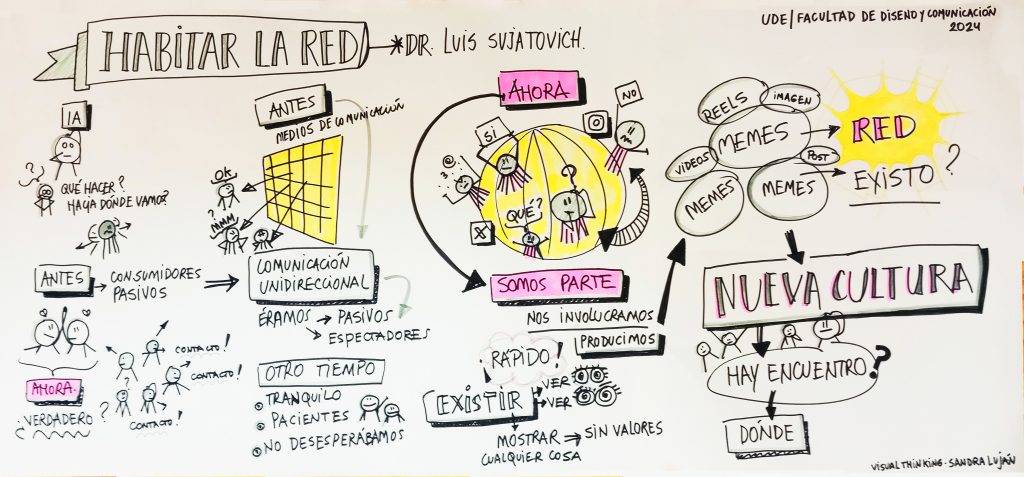 HABITAR LA RED
*DR. LUIS SUJATOVICH.
UDE/FACULTAD DE DISEÑO Y COMUNICACIÓN
2024
IA
?
QUÉ HACER?
HACIA DÓNDE VAMOS?
ANTES
CONSUMIDORES
PASIVOS
AHORA.
VERDADERO?
CONTACTO!
CONTACTO!
CONTACTO!
?
ANTES
MEDIOS DE COMUNICACIÓN
OK
?
MMM
COMUNICACIÓN
UNIDIRECCIONAL
ÉRAMOS → PASIVOS
→ ESPECTADORES
OTRO TIEMPO
TRANQUILO
PACIENTES
NO DESESPERÁBAMOS
AHORA
SI
NO
?
QUÉ?
SOMOS PARTE
NOS INVOLUCRAMOS
PRODUCIMOS
RÁPIDO!
EXISTIR
VER
VER
MOSTRAR ⇒ SIN VALORES
CUALQUIER COSA
REELS
IMAGEN
MEMES
VIDEOS
POST
MEMES
MEMES
RED
EXISTO?
NUEVA CULTURA
HAY ENCUENTRO?
DÓNDE
VISUAL THINKING - SANDRA LUJÁN